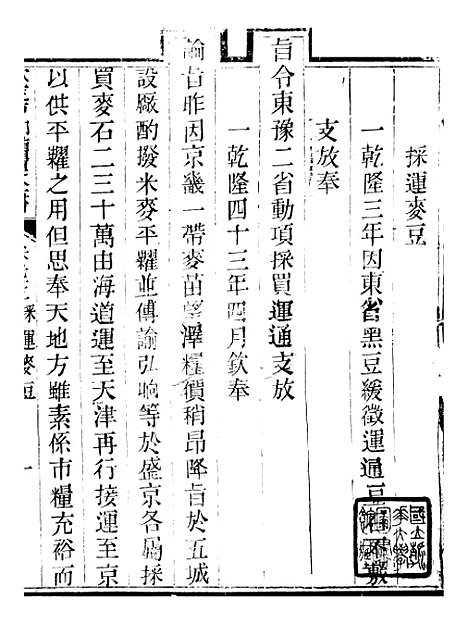 採運麥豆
一乾隆三年因東省黑豆緩徵運通豆石不敷
支放奉
旨令東豫二省動項採買運通支放
一乾隆四十三年四月欽奉
諭旨昨因京畿一帶麥苗望澤糧價稍昂降旨於五城
設厰酌撥米麥平糶並傳諭弘晌等於盛京各屬採
買麥石二三十萬由海道運至天津再行接運至京
以供平糶之用但思奉天地方雖素係市糧充裕而
採運麥豆 一